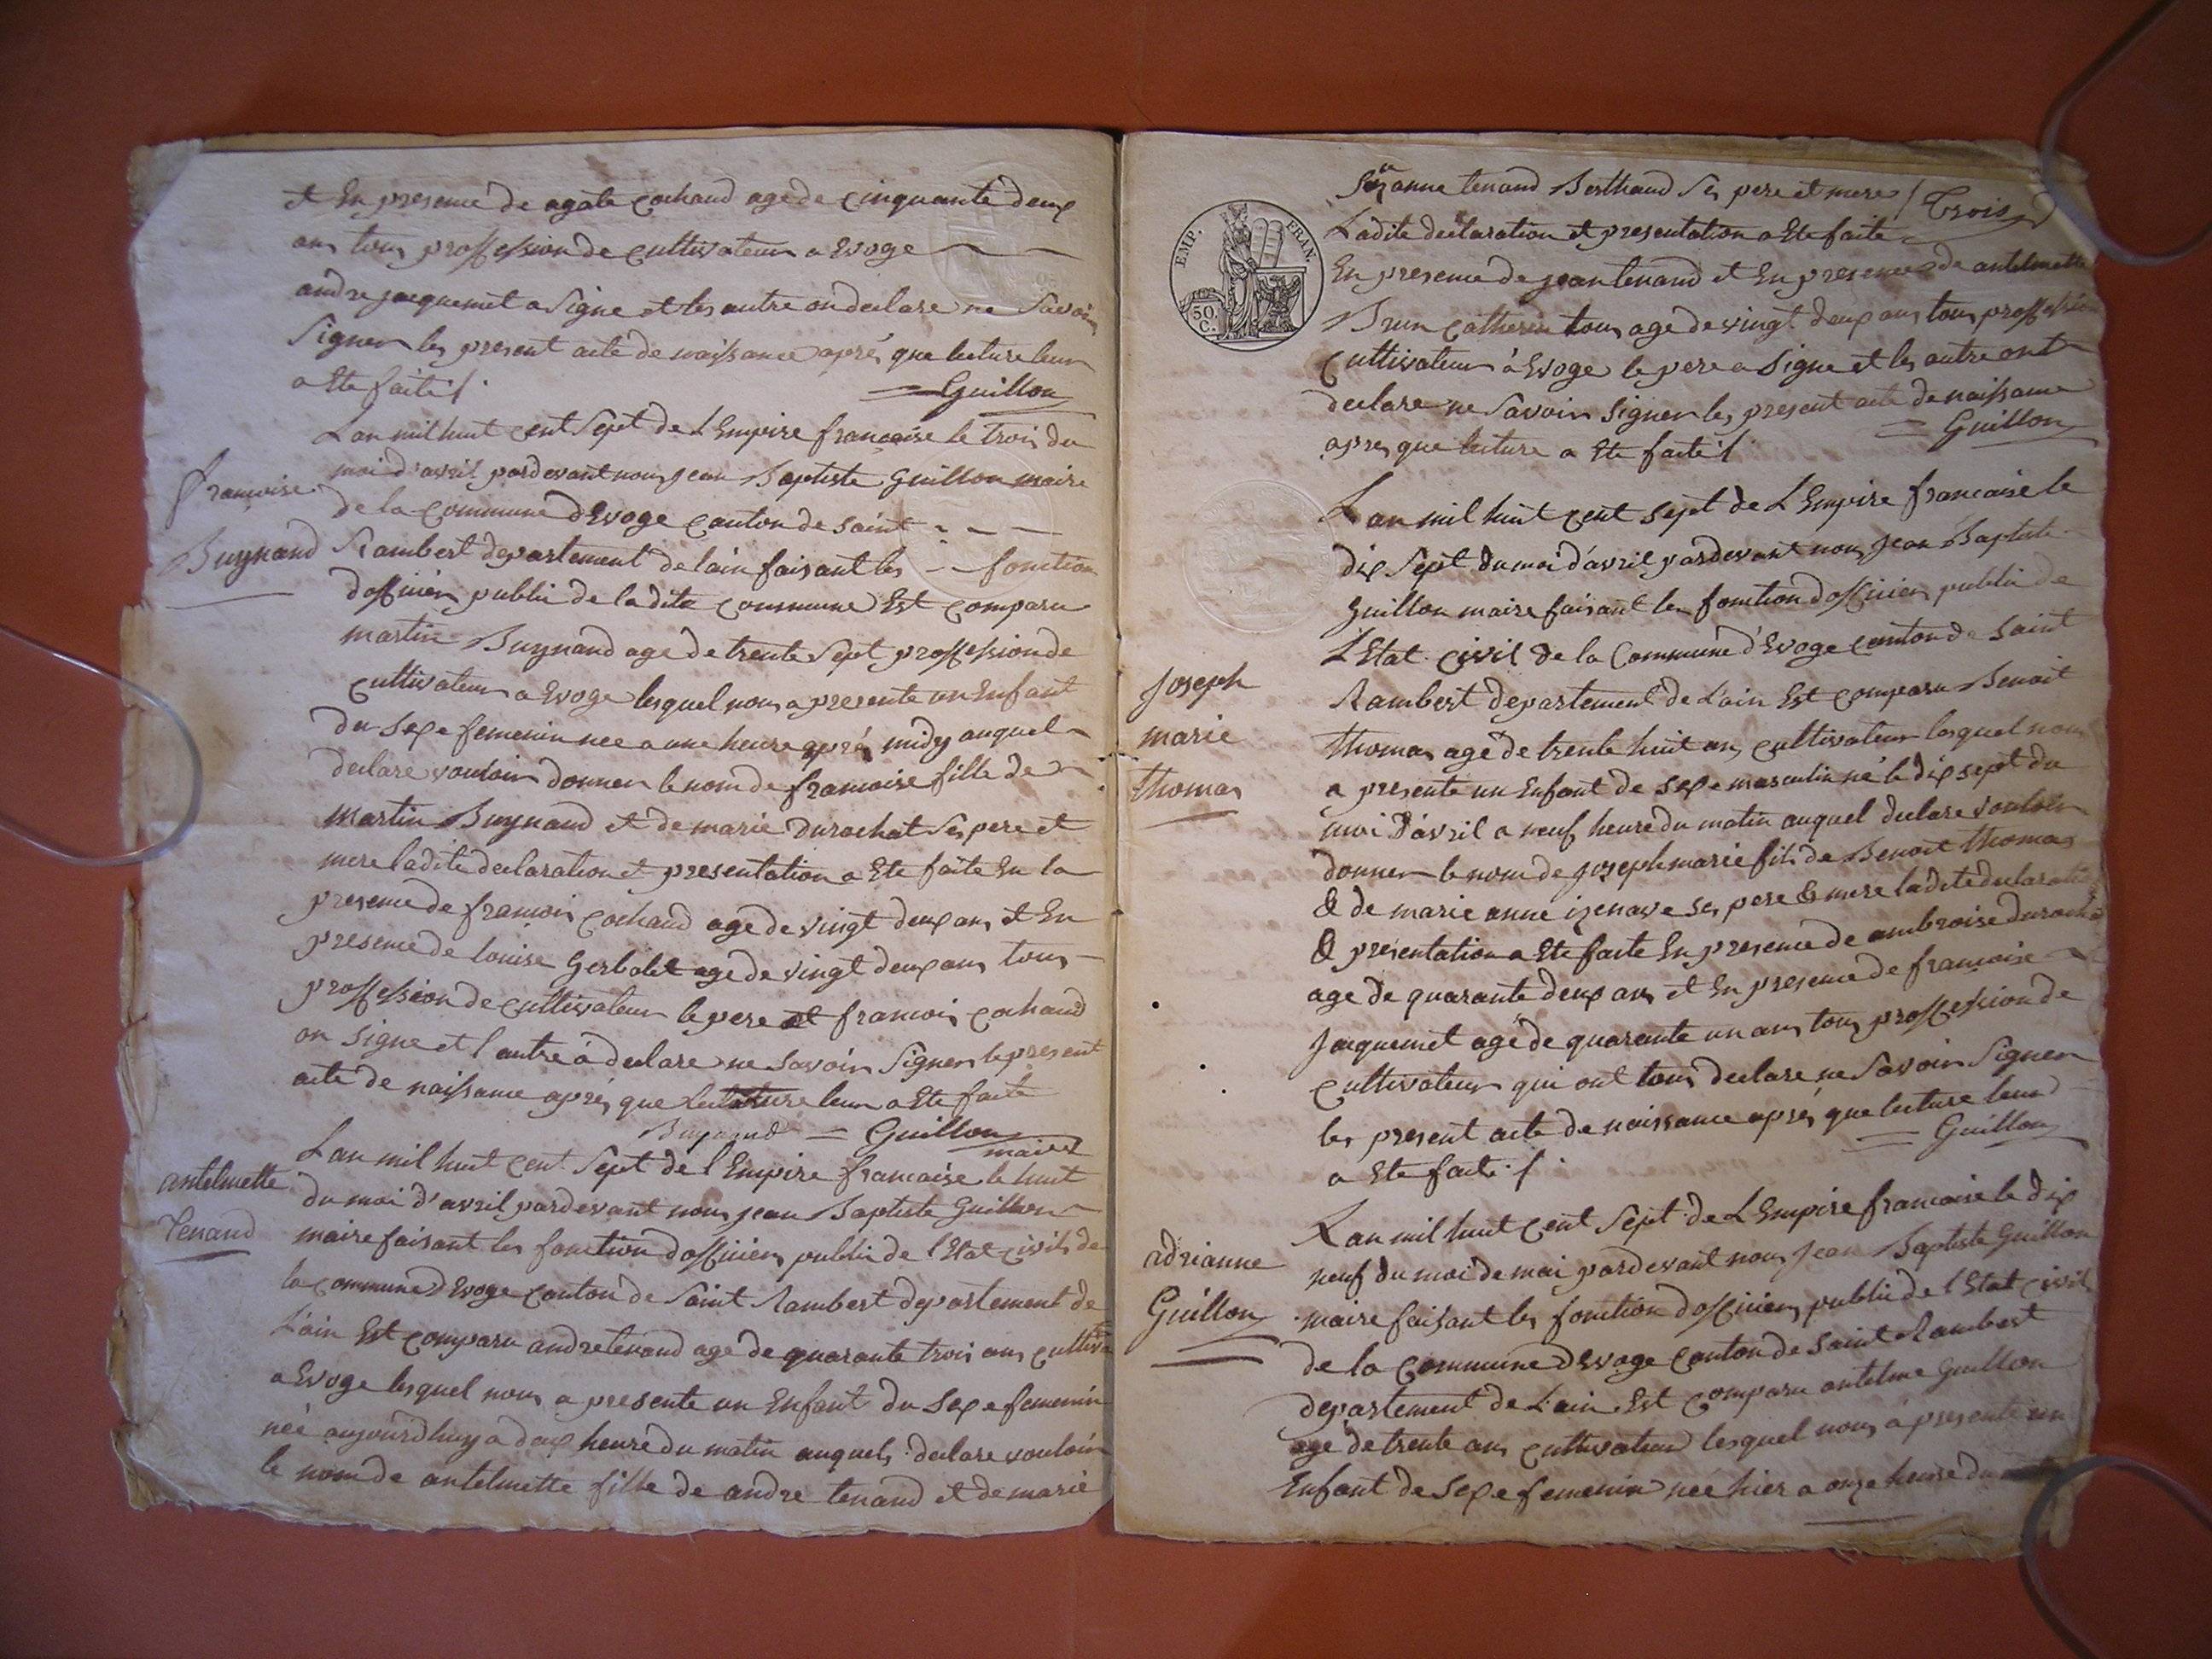 et En presence de agate cochand age de cinquante deux
ans tous proffession de cultivateur a Evoge
andre jacquemet a signe et les autre on declare ne savoir
signer les present acte de naissance aprés que lecture leur
a Ete faite /.
= Guillon
L an mil huit cent Sept de L Empire francaise le trois du
moi d'avril pardevant nous jean Baptiste Guillon maire
francoise
de la Commune d Evoge canton de saint
Buynand
Rambert departement de lain faisant les fonction
d officier public de la dite commune Est comparu
martin Buynand age de trente sept proffession de
cultivateur a Evoge lesquel nous a presente un Enfant
du sexe femenin nee a une heure aprés midy auquel
declare vouloir donner le nom de francoise fille de
martin Buynand et de marie Durochat ses pere et
mere ladite declaration et presentation a Ete faite En la
presence de francois cochand age de vingt deux ans et En
presence de louise Gerbolet age de vingt deux ans tous
proffession de cultivateur le pere et francois cochand
on signe et l autre à declare ne savoir signer le present
acte de naissance aprés que lecture leur a Ete faite
Buynand = Guillon
maire
L an mil huit cent Sept de l Empire francaise le huit
antelmette
du moi d'avril pardevant nous jean Baptiste Guillon
Tenand
maire faisant les fonction d officier public de l Etat civil de
la commune d Evoge canton de saint Rambert departement de
L'ain Est comparu andre tenand age de quarante trois ans cultiva
a Evoge lesquel nous a presente un Enfant du sexe femenin
née aujourdhuy a deux heure du matin auquel declare vouloir
le nom de antelmette fille de andre tenand et de marie
Suzanne tenand Berthaud ses pere et mere / Trois
Ladite declaration et presentation a Ete faite
EMP. FRAN.
50. C.
En presence de jean tenand et En presence de antelmette
Brun catherin tous age de vingt deux ans tous proffession
cultivateur à Evoge le pere a signe et les autre ont
declare ne savoir signer les present acte de naissance
apres que lecture a Ete faite /
= Guillon
L an mil huit cent sept de L Empire francaise le
dix sept du moi d'avril pardevant nous jean Baptiste
Guillon maire faisant les fonction d officier public de
L'Etat civil de la Commune d'Evoge canton de saint
Joseph
marie
thomas
Rambert departement de L'ain Est comparu Benoit
thomas age de trente huit ans cultivateur lesquel nous
a presente un Enfant de sexe masculin né le dix sept du
moi d'avril a neuf heure du matin auquel declare vouloir
donner le nom de joseph marie fils de Benoit thomas
& de marie anne izenave ses pere & mere ladite declaration
& presentation a Ete faite En presence de ambroise durochat
age de quarante deux ans et En presence de francoise
jacquemet age de quarante un ans tous proffession de
cultivateur qui ont tous declare ne savoir signer
les present acte de naissance aprés que lecture leur
a Ete faite /.
= Guillon
L an mil huit cent Sept de L Empire francaise le dix
adrianne
neuf du moi de mai pardevant nous jean Baptiste Guillon
Guillon
maire faisant les fonction d officier public de l Etat civil
de la commune d Evoge canton de saint Rambert
departement de L'ain Est comparu antelme Guillon
age de trente ans cultivateur lesquel nous à presente un
Enfant de sexe femenin née hier a onze heure du